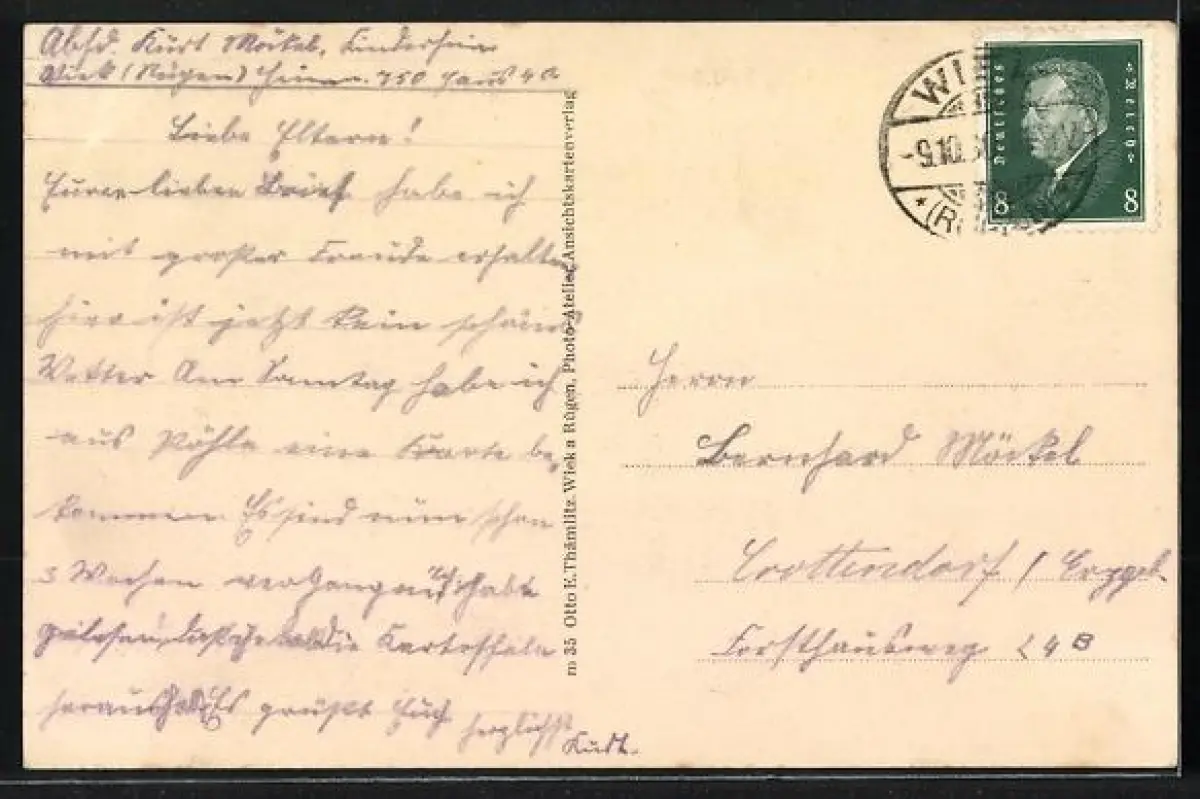 Absd. Kurt Möckel, Kinderheim
Wiek (Rügen) 750 Haus 4a
Liebe Eltern!
Euren lieben Brief habe ich
mit großer Freude erhalten
hier ist jetzt kein schönes
Wetter Am Sonntag habe ich
aus Pöhla eine Karte be-
kommen. Es sind nun schon
3 Wochen vergangen Ich habe
gelesen, daß ihr bald die Kartoffeln
heraus habt Es grüßt Euch herzlichst
Kurt.
m 35 Otto E. Thämlitz, Wiek a Rügen, Photo-Atelier, Ansichtskartenverlag
WIEK
-9.10.
* (RÜGEN)
Deutsches Reich
8 8
Herrn
Bernhard Möckel
Crottendorf / Erzgeb.
Forsthausweg 24B